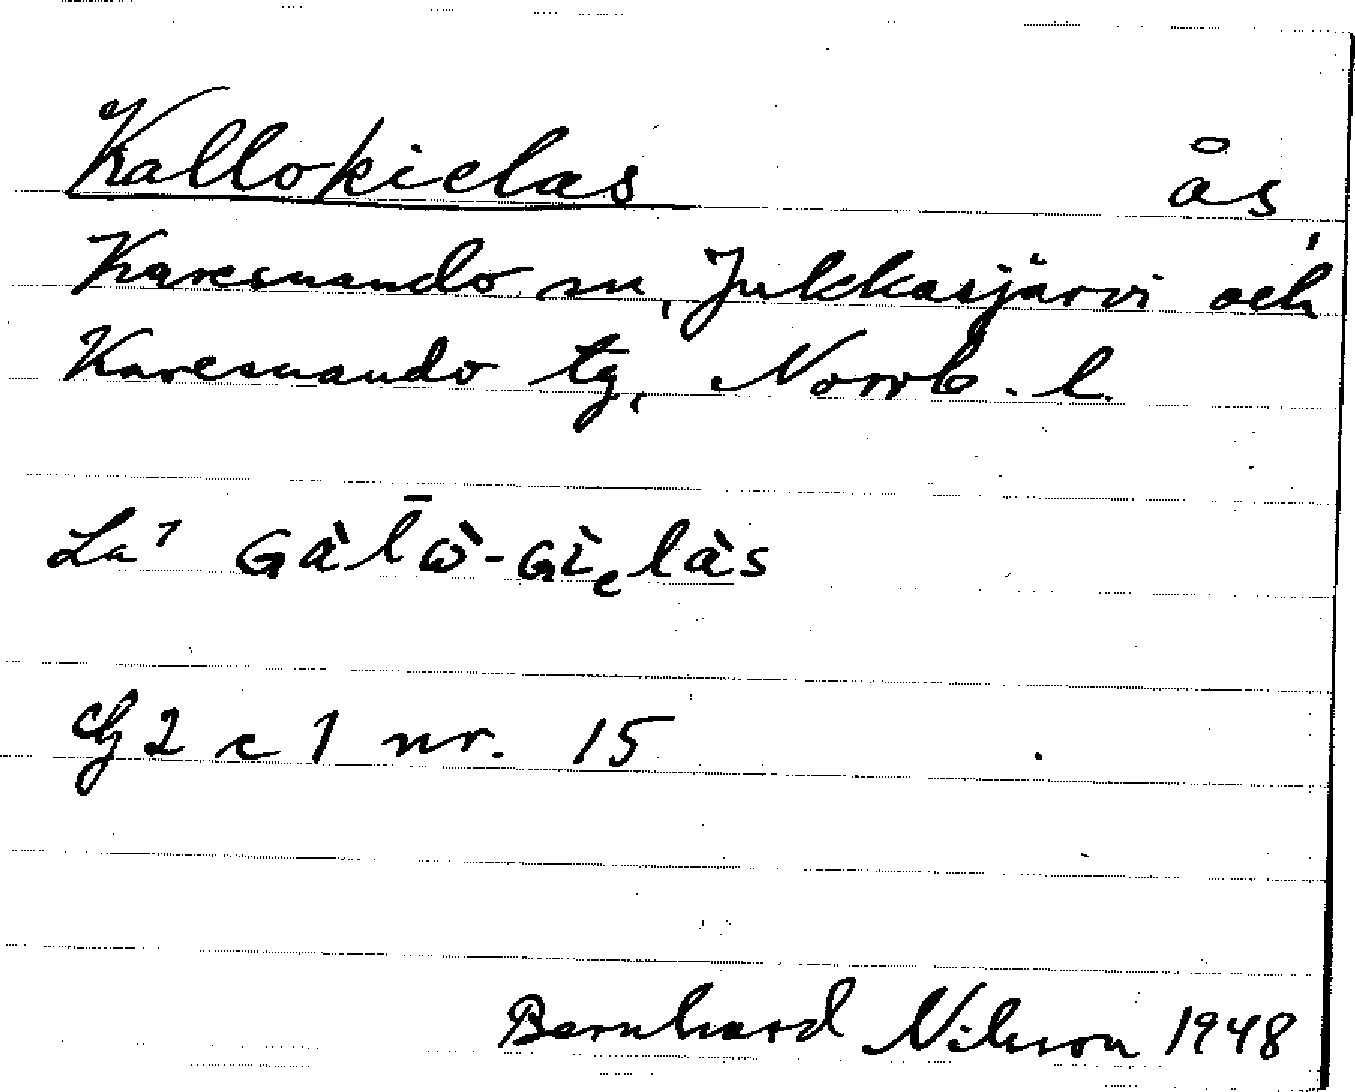 Kallokielas ås
Karesuando sn, Jukkasjärvi och
Karesuando tg, Norrb. l.
La' Gàl̄ò-Gìₑlàs
2 c 1 nr. 15
Bernhard Nilsson 1948